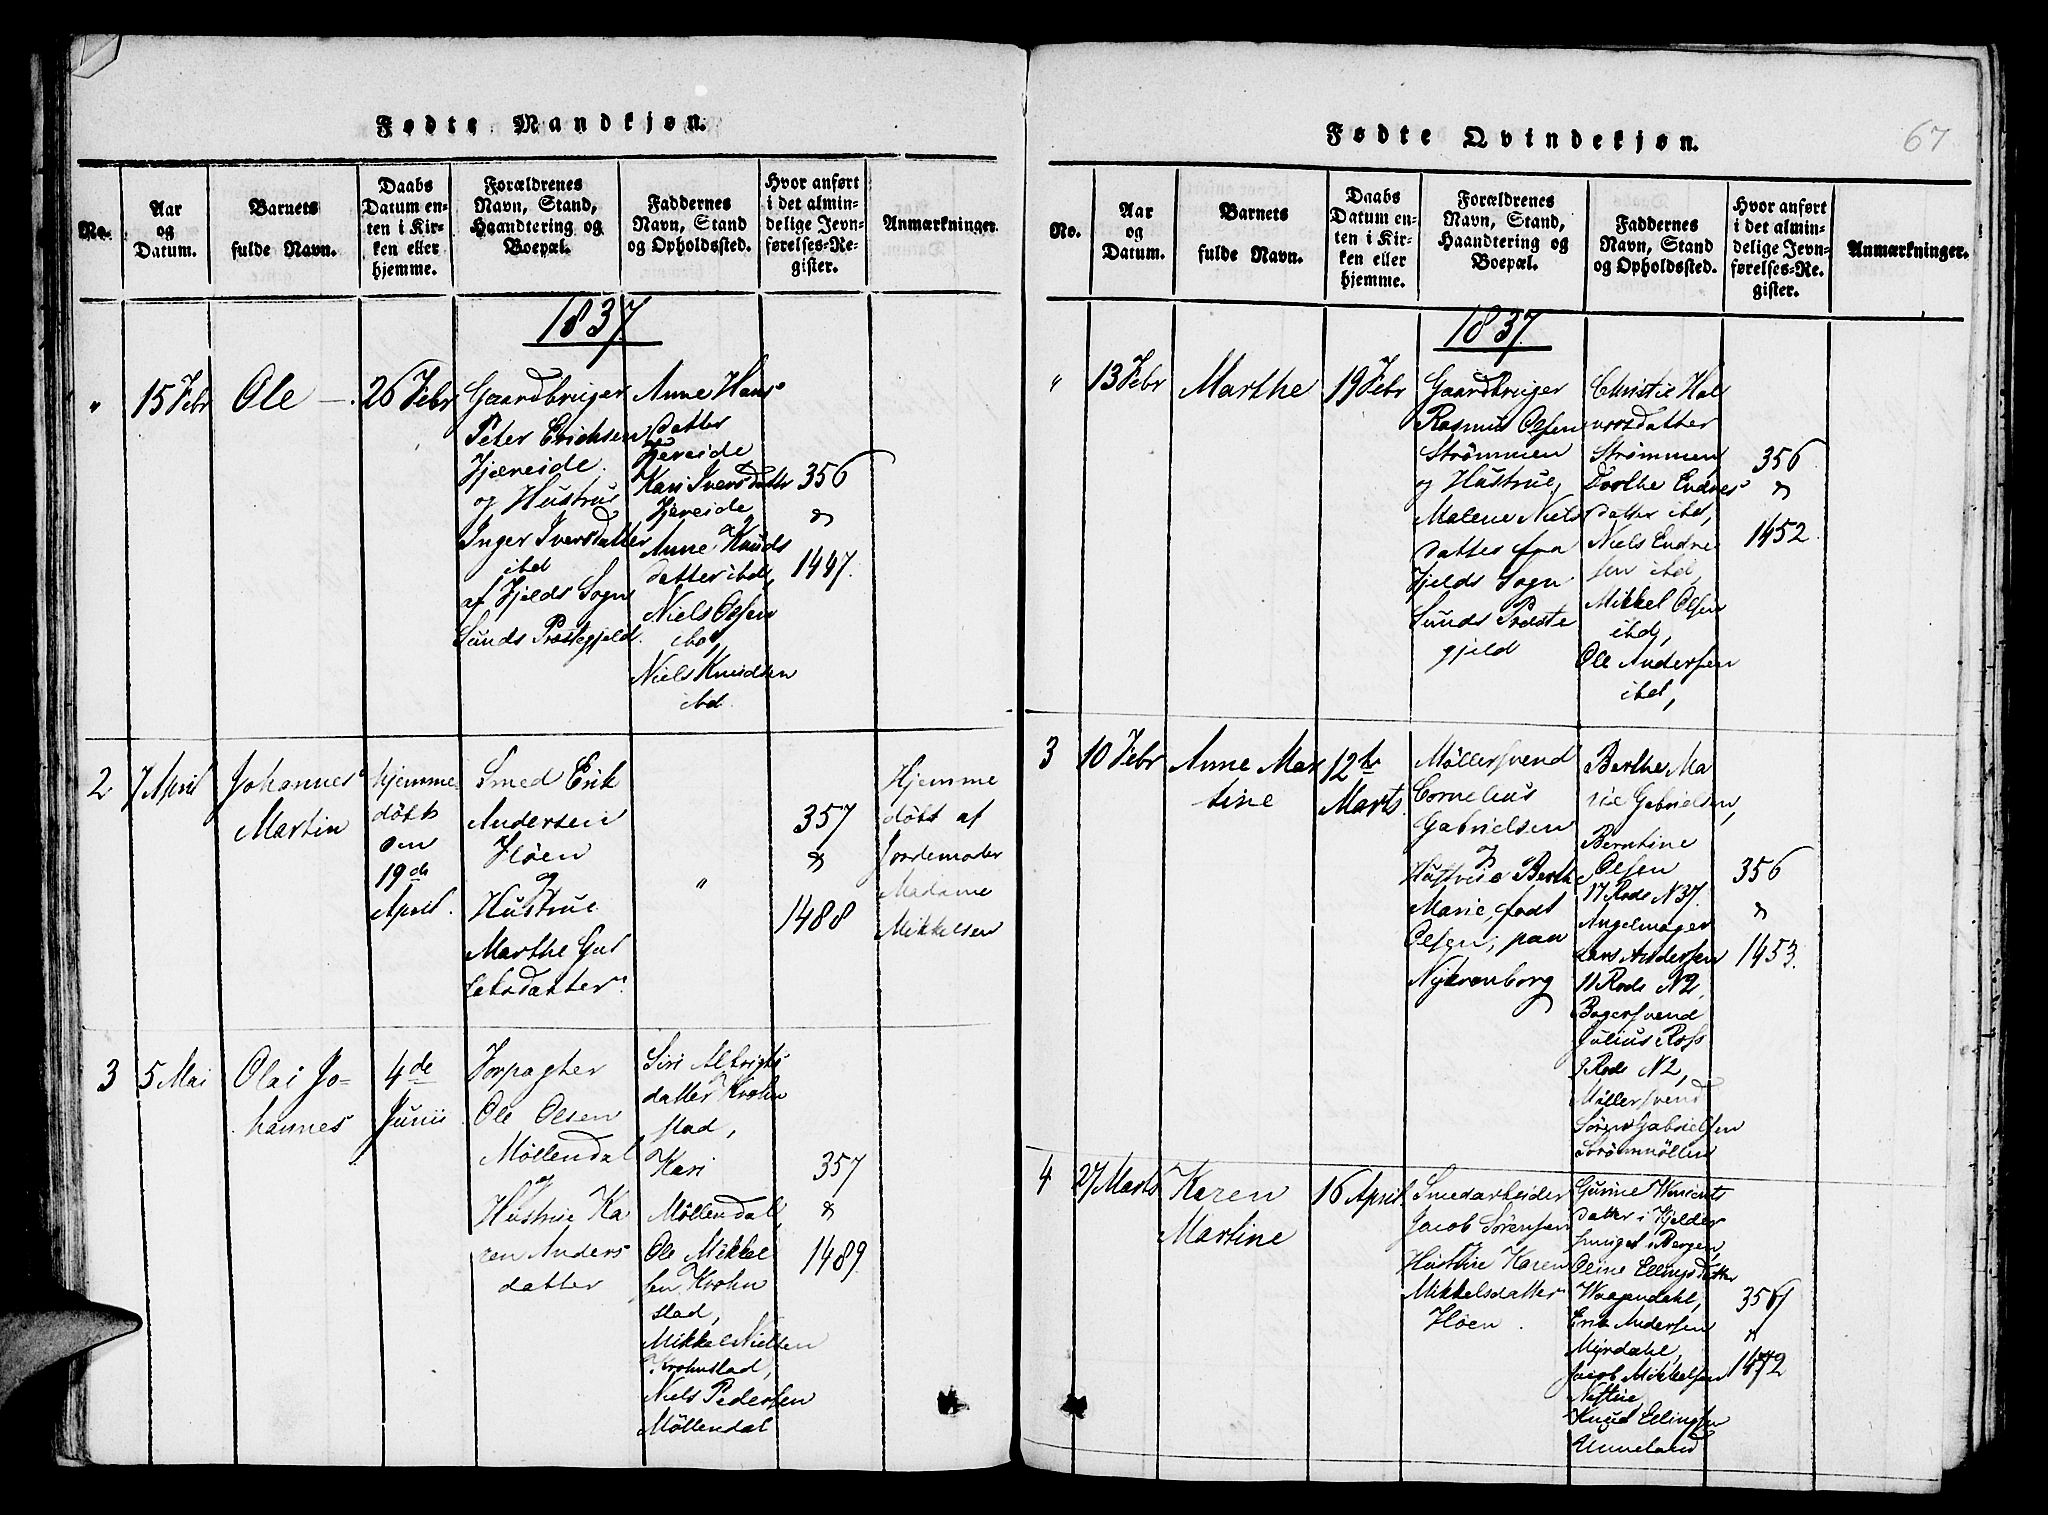 Fødte Mandkjøn.
No.
Aar
og
Datum.
Barnets
fulde Navn.
Daabs
Datum en-
ten i Kir-
ken eller
hjemme.
Forældrenes
Navn, Stand,
Haandtering og
Boepæl.
Faddernes
Navn, Stand
og Opholdssted.
Hvor anført
i det almin-
delige Jevn-
førelses-Re-
gister.
Anmærkninger.
1837.
"
15 Febr
Ole —.
26 Febr
Gaardbruger
Peter Erichsen
Fjæreide
og Hustrue
Inger Iversdatter
ibd
af Fjelds Sogn
Sunds Præstegjeld.
Anne Hans
datter
Fjereide
Kari Iversdatter
Fjereide
Anne Knuds
datter ibd,
Niels Olsen
ibd,
Niels Knudsen
ibd.
356
&
1447.
2
7 April
Johannes
Martin
hjemme
døbt
om
19de
April.
Smed Erik
Andersen
Høen
og
Hustrue
Marthe Gut
tebsdatter.
"
357
&
1488
Hjemme
døbt af
Jordemoder
Madame
Mikkelsen
3
5 Mai
Olai Jo-
hannes
4de
Junii
Forpagter
Ole Olsen
Møllendal
og
Hustrue Ka
ren Anders
datter
Siri Albrigts
datter Krohn
stad,
Kari
Møllendal,
Ole Mikkel
sen Krohn
stad,
Mikkel Nielsen
Krohnstad,
Niels Pedersen
Møllendal
357
&
1489.
Fødte Qvindekjøn.
67
No.
Aar
og
Datum.
Barnets
fulde Navn.
Daabs
Datum en-
ten i Kir-
ken eller
hjemme.
Forældrenes
Navn, Stand,
Haandtering og
Boepæl.
Faddernes
Navn, Stand
og Opholdssted.
Hvor anført
i det almin-
delige Jevn-
førelses-Re-
gister.
Anmærkninger.
1837.
"
13 Febr
Marthe
19 Febr
Gaardbruger
Rasmus Olsen
Strømmen
og Hustrue,
Malene Niels
datter fra
Fjelds Sogn
Sunds Præste
gjeld
Christie Hal
vorsdatter
Strømmen
Dorthe Endres
datter ibd,
Niels Endre
sen ibd,
Mikkel Olsen
ibd,
Ole Andersen
ibd,
356
&
1452.
3
10 Febr
Anne Mar
tine
12te
Marts.
Møllersvend
Cornelius
Gabrielsen
og
Hustrue Berthe
Marie, født
Olsen, paa
Nykronborg
Berthe Ma
rie Gabrielsen,
Berntine
Olsen
17 Rode N 37.
Angelmager
Lars Andersen
11 Rode N 2,
Bagersvend
Julius Ross
9 Rode N 2,
Møllersvend
Søren Gabrielsen
Storemøllen
356
&
1453.
4
27 Marts
Karen
Martine
16 April.
Smedarbeider
Jacob Sörensen
og
Hustrue Karen
Mikkelsdatter
Høen.
Gurine
datter i Kjelder
smuget i Bergen,
Oline Ellingsdatter
Wognndahl,
Erik Andersen
Myrdahl,
Jacob Mikkelsen
Knud Ellingsen
Unneland
356
&
1472